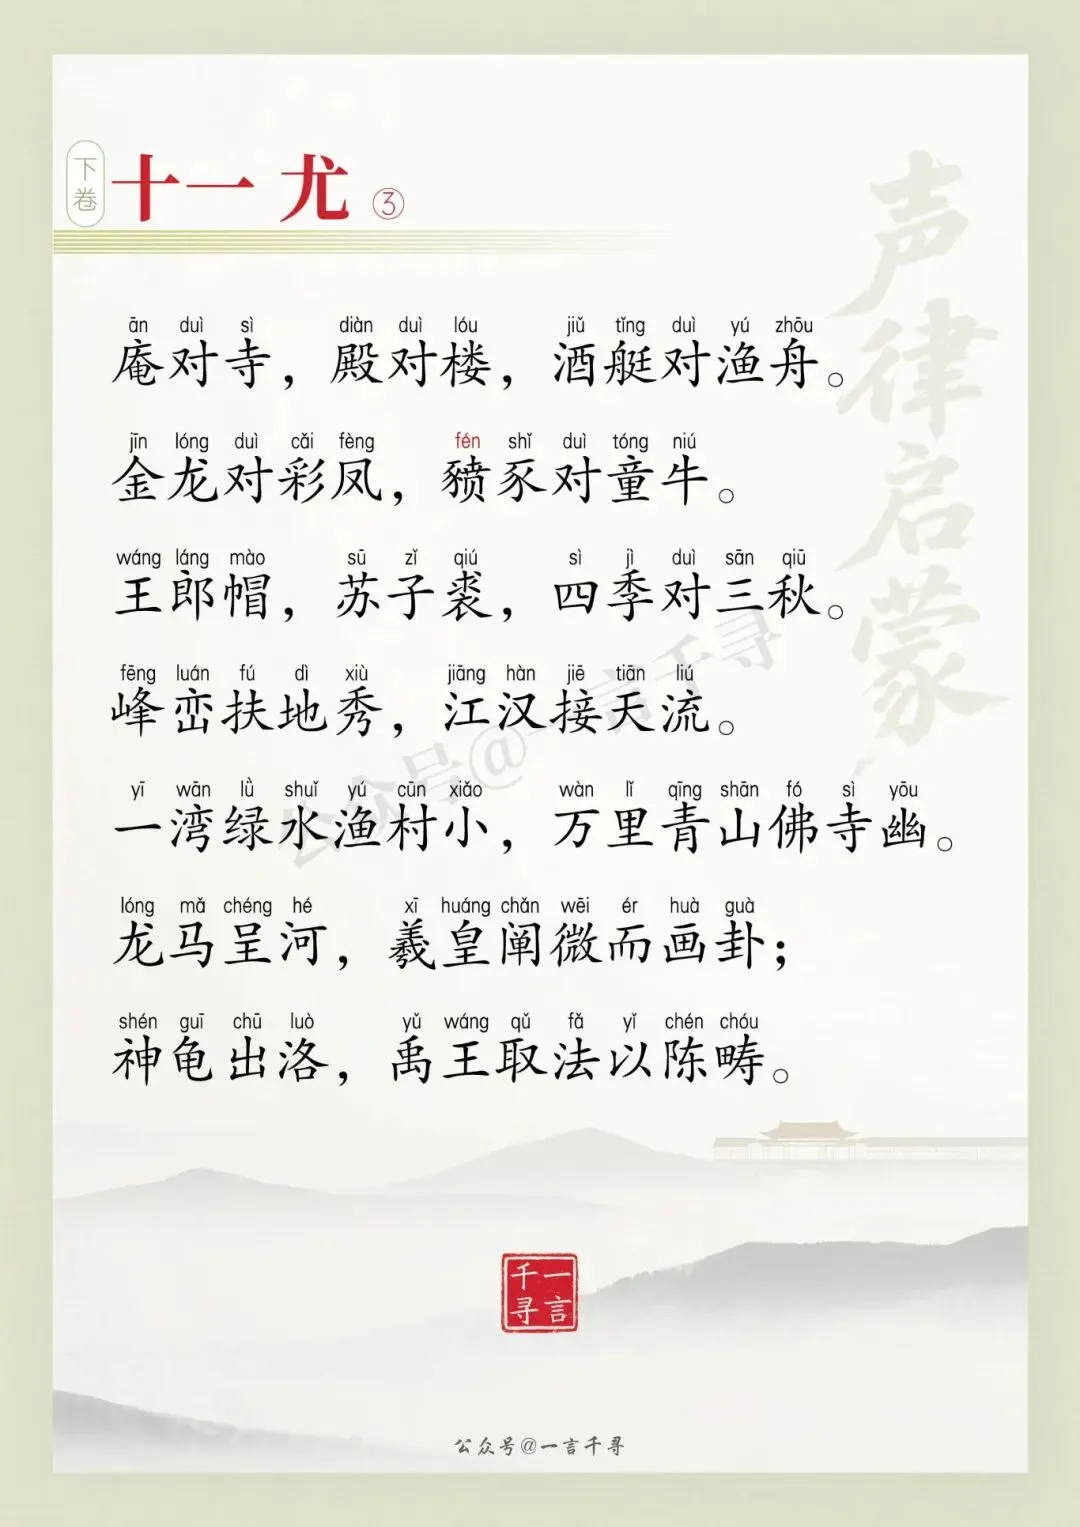 下卷
十一 尤 ③
声律启蒙
ān duì sì diàn duì lóu jiǔ tǐng duì yú zhōu
庵对寺，殿对楼，酒艇对渔舟。
jīn lóng duì cǎi fèng fén shǐ duì tóng niú
金龙对彩凤，豮豕对童牛。
wáng láng mào sū zǐ qiú sì jì duì sān qiū
王郎帽，苏子裘，四季对三秋。
fēng luán fú dì xiù jiāng hàn jiē tiān liú
峰峦扶地秀，江汉接天流。
yī wān lǜ shuǐ yú cūn xiǎo wàn lǐ qīng shān fó sì yōu
一湾绿水渔村小，万里青山佛寺幽。
lóng mǎ chéng hé xī huáng chǎn wēi ér huà guà
龙马呈河，羲皇阐微而画卦；
shén guī chū luò yǔ wáng qǔ fǎ yǐ chén chóu
神龟出洛，禹王取法以陈畴。
公众号@一言千寻
一言千寻
公众号@一言千寻